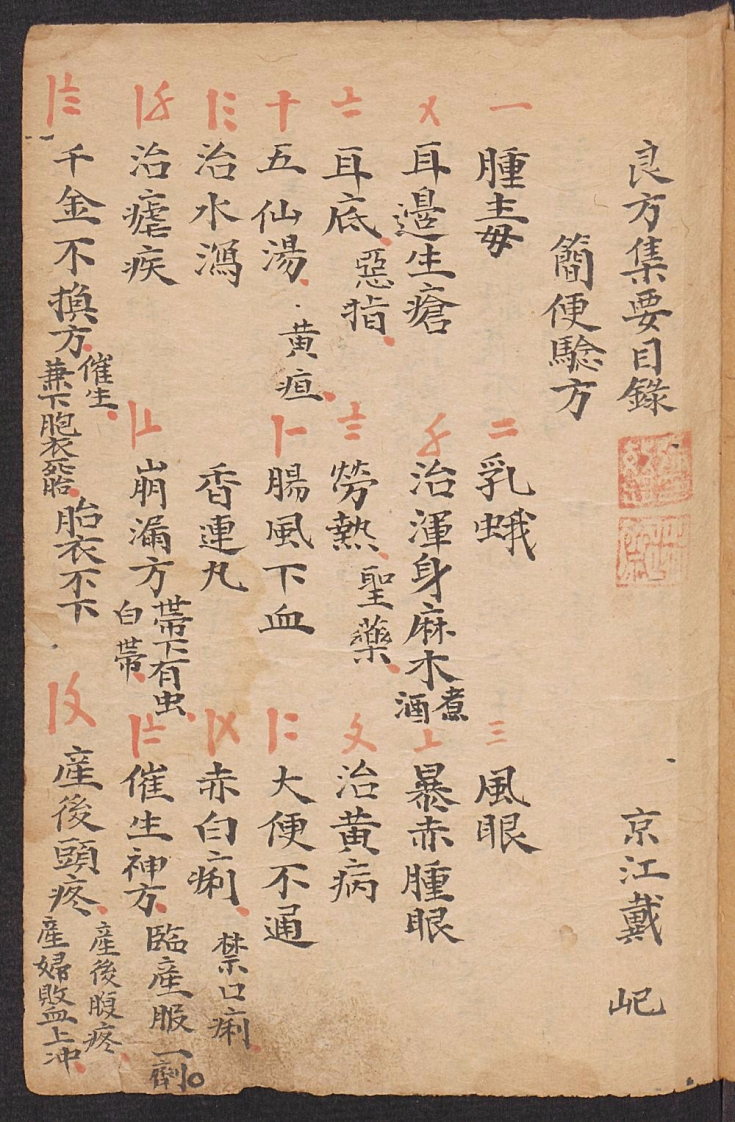 良方集要目錄 京江戴 屺
簡便騐方
一 腫毒 二 乳蛾 三 風眼
〤 耳邉生瘡 〥 治渾身麻木 煮酒 〦 暴赤腫眼
〧 耳底 惡指 〨 勞熱 聖藥 〩 治黄病
十 五仙湯 黄疸 〡一 腸風下血 〡二 大便不通
〡三 治水瀉 香連丸 〡〤 赤白痢 禁口痢
〡〥 治瘧疾 〡〦 崩漏方 帶下有虫 白帶 〡〧 催生神方 臨産服一劑
〡〨 千金不換方 催生 兼下胞衣死胎 胎衣不下 〡〩 産後頭疼 産後腹疼 産婦敗血上冲